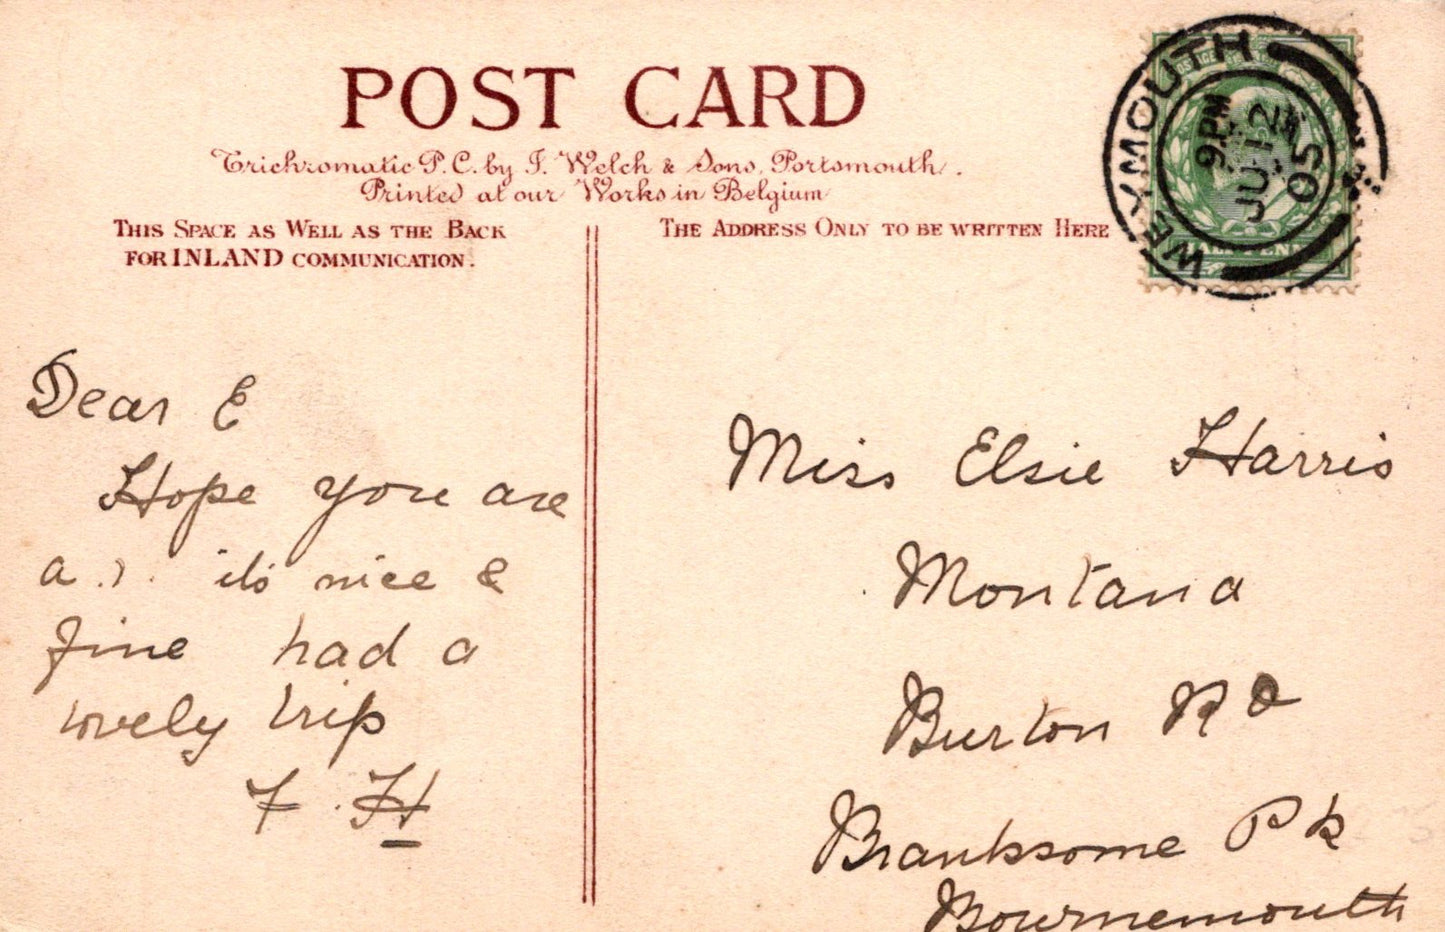 POST CARD
Trichromatic P.C. by J. Welch & Sons, Portsmouth.
Printed at our Works in Belgium
THIS SPACE AS WELL AS THE BACK
FOR INLAND COMMUNICATION.
THE ADDRESS ONLY TO BE WRITTEN HERE
WEYMOUTH
9 PM
JU 12
05
Dear E
Hope you are
its nice &
fine had a
lovely trip
F. H
Miss Elsie Harris
Montana
Burton Rd
Branksome Pk
Bournemouth